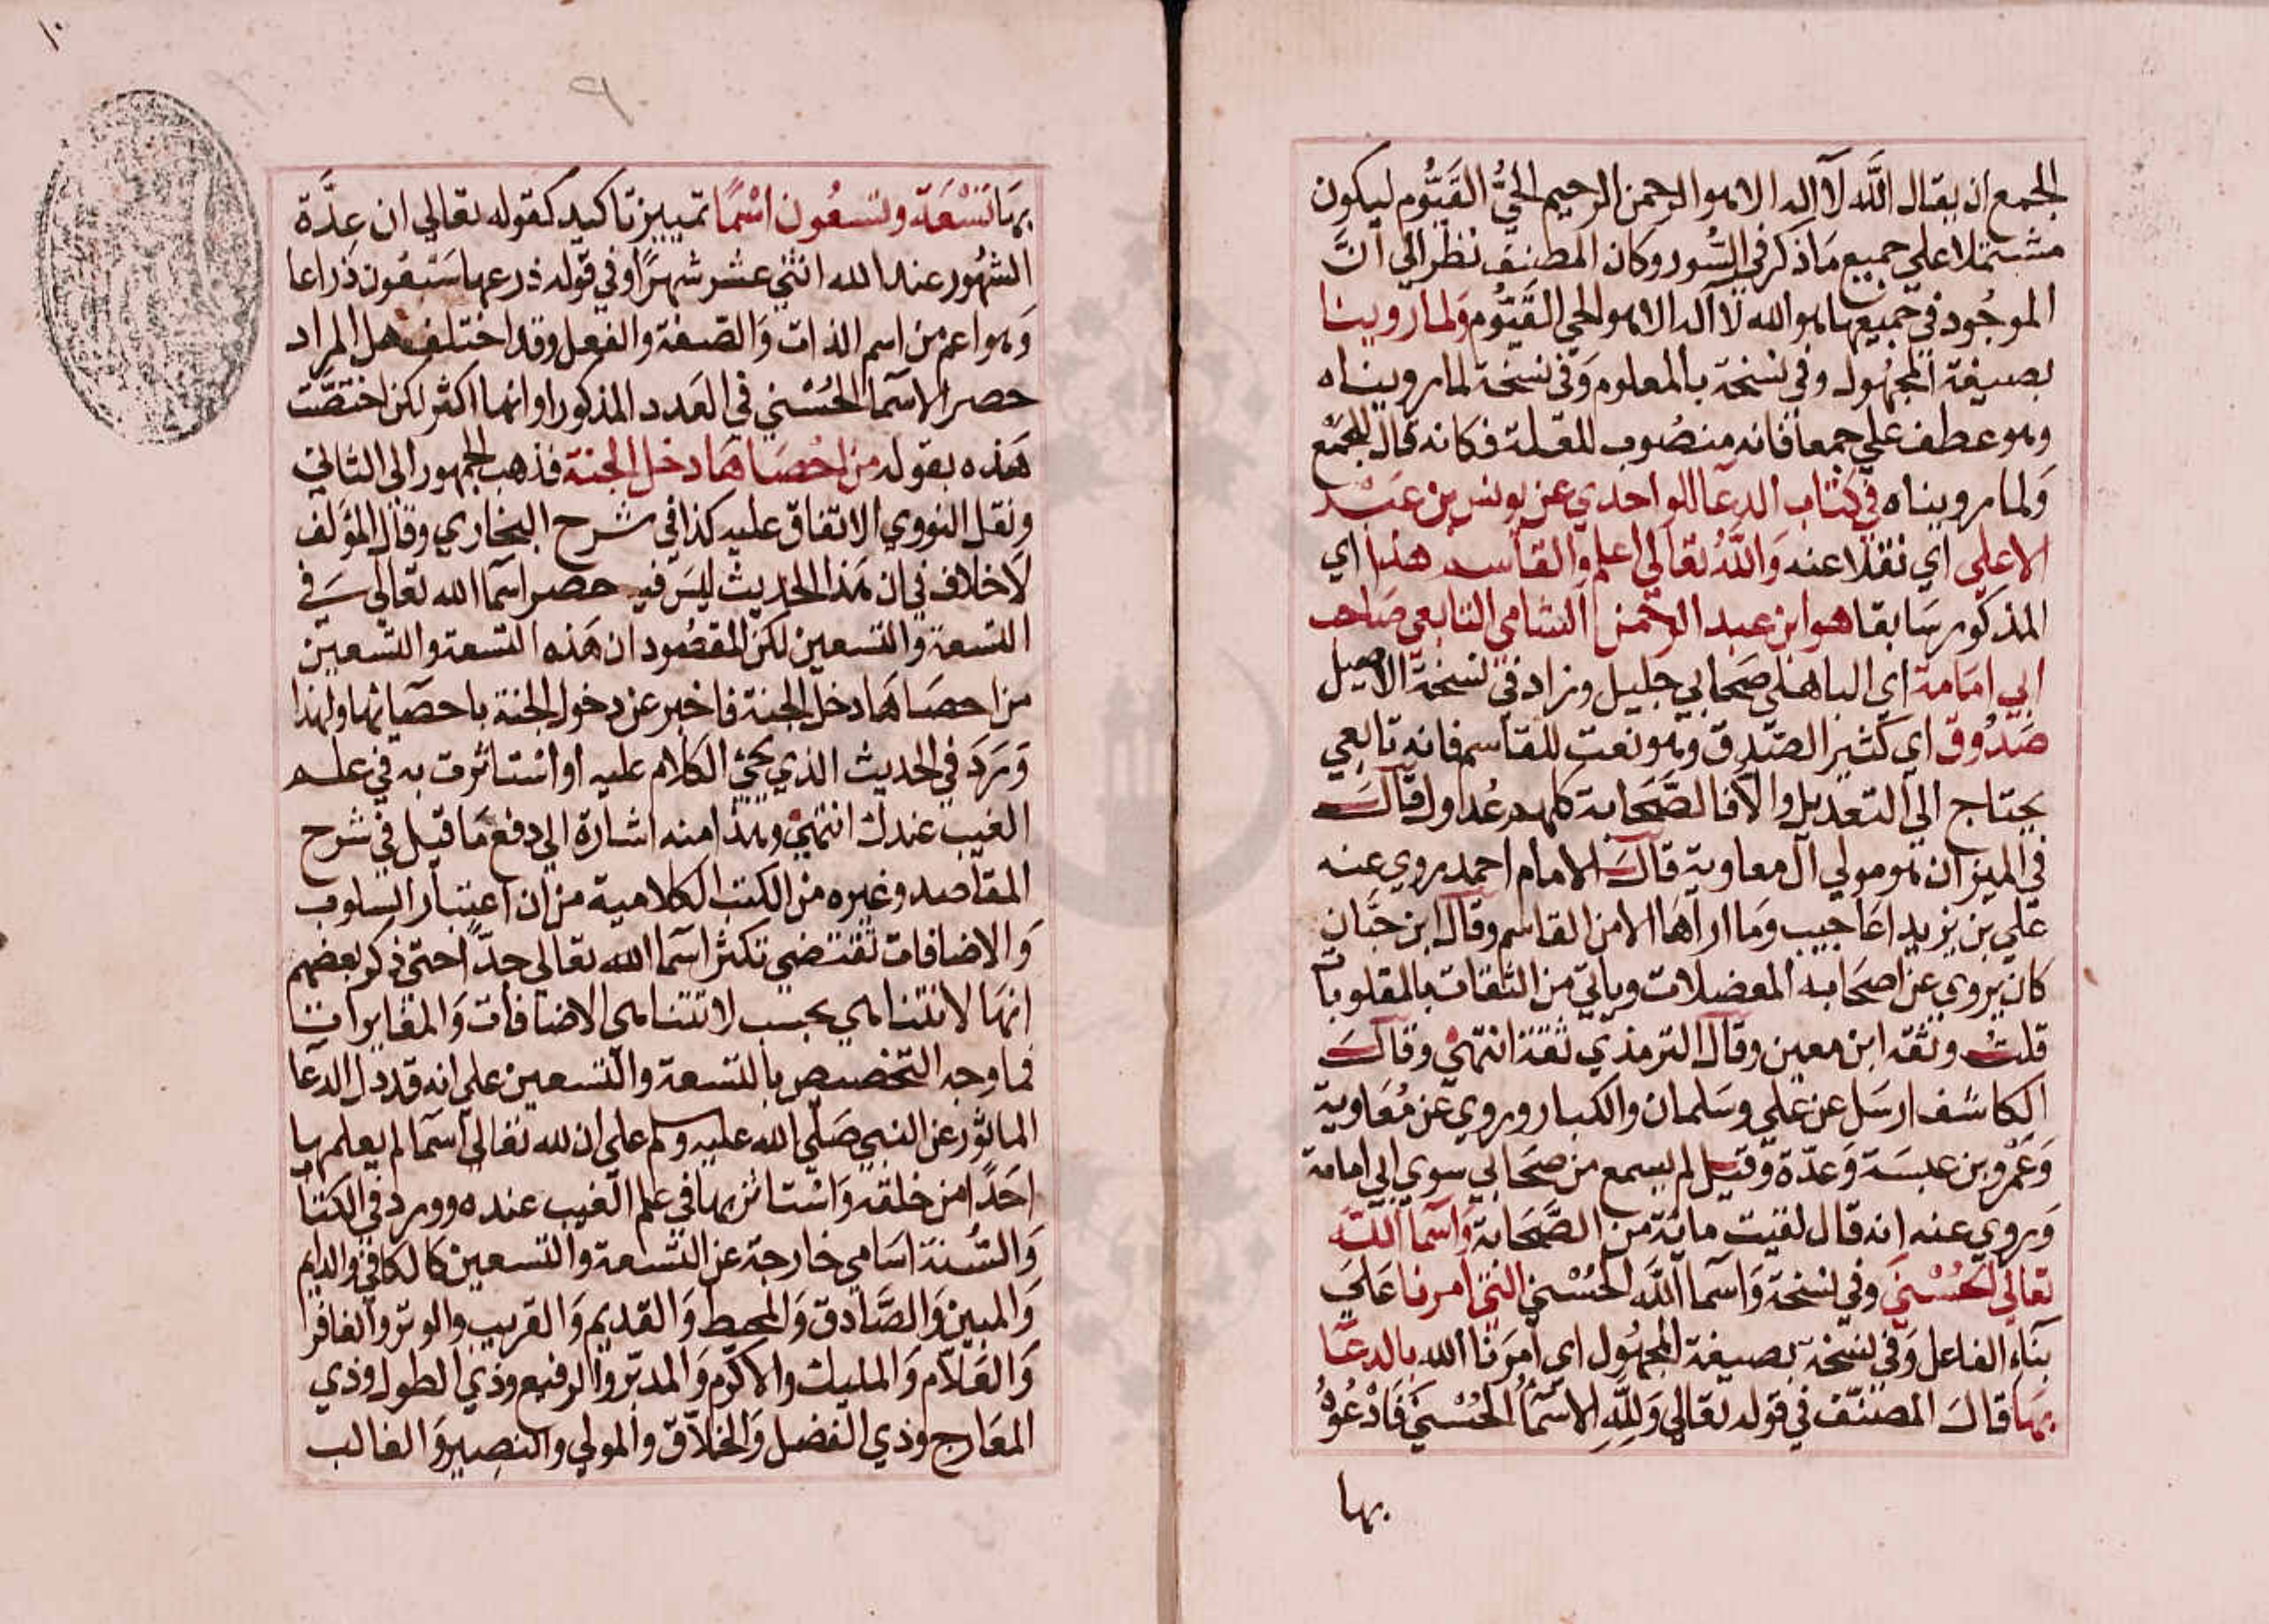 الجمع ان يقال اللَّه لآ اله الا هو الرحمن الرحيم الحيُّ القَيُّوم ليكون
مشتملا علي جميع مَا ذكر في السُّور وكان المصنف نظر الي انَّ
الموجُود في جميعها هو الله لآ اله الا هو الحي القَيُّوم وَلما روينا
بصيغة المجهُول وفي نسخة بالمعلوم وَفي نسخة لما رويناه
وهو عطف علي جمعا فانه منصُوب للعلة فكانه قال للجَمْع
وَلما رويناه في كتاب الدعَا للواحدي عن يونس بن عَبْد
الاعلي اي نقلا عنه وَاللَّهُ تعَالي اعلم وَالقاسم هذا اي
المذكور سَابقا هو ابن عبد الرحمن الشامي التابعي صَاحب
ابي امَامَة اي الباهلي صَحابي جليل وزاد في نسخة الاصيل
صَدُوق اي كثير الصّدق وهو نعت للقاسم فانه تابعي
يحتاج الي التعديل والا فالصَّحَابة كلهم عُدول قالَ
في الميزان هو مولي آل معاوية قالَ الامام احمد روي عنه
علي بن يزيد اعَاجيب وَما اراهَا الا من القاسم وقال ابن حبَّان
كان يروي عن اصحَابه المعضلات وياتي من الثقات بالمقلوبات
قلتُ وثقه ابن معين وقال الترمذي ثقة انتهي وقالَ
الكاشف ارسَل عن علي وسَلمان والكبار وروي عن مُعَاوية
وَعَمْرو بن عبسَة وَعدّة وَقيل لم يسمع من صحَابي سوي ابي امامة
وَروي عنه انه قال لقيت مائة من الصَّحَابة وَاسما اللَّه
تعالي الحُسْنيَ وفي نسخة وَاسما اللَّه الحُسْني التي امرنا عَلي
بنَاء الفاعل وَفي نسخة بصيغة المجهُول اي أمرَنا الله بالدعَا
بهَا قالَ المصَنّف في قوله تعَالي وَلِلَّهِ الاسْمَآُ الحُسْنيَ فَادْعُوهُ
بها
١٠
٩
بهَا تسْعَة وتسعُون اسْمًا تمييز تاكيد كقوله تعَالي ان عِدَّة
الشهُور عند الله اثني عشر شهرًا وفي قوله ذرعها سَبعُون ذراعا
وَهو اعم من اسم الذات وَالصّفة والفعل وقد اختلف هل المراد
حصر الاسمآ الحُسْني في العَدد المذكور او انها اكثر لكن اختصَّت
هَذه بقوله من احْصَاهَا دخل الجنة فذهب الجمهور الي الثاني
ونقل النووي الاتفاق عليه كذا في شرح البخاري وقال المؤلف
لَا خلاف في ان هَذا الحديث ليسَ فيه حصر اسمآ الله تعَالي في
التسعة وَالتسعين لكن المقصُود ان هَذه التسعة والتسعين
من احصَاهَا دخل الجنة فاخبر عن دخول الجنة باحصَائها ولهذا
وَرَدَ في الحديث الذي يجئ الكلام عليه او اسْتاثرت به في علم
الغيب عندك انتهي وهذا منه اشارة الي دفع مَا قيل في شرح
المقاصد وغيره من الكتب الكلامية من ان اعتبار السلوب
وَالاضافات تقتضي تكثر اسمآ الله تعَالي جدّا حتي ذكر بعضهم
انهَا لا تتناهي بحسب لا تتناهي الاضافات وَالمغايرات
فما وجه التخصيص بالتسعة والتسعين علي انه قد دل الدعَا
الماثور عن النبي صَلّي الله عليه وسلم علي ان لله تعَالي اسمآ لم يعلمها
احَدًا من خلقه وَاسْتاثر بها في علم الغيب عنده وورد في الكتا
وَالسُّنة اسَامي خارجة عن التسعة والتسعين كالكافي والدايم
وَالمبين وَالصَّادق وَالمحيط وَالقديم وَالقريب والوتر والغافر
وَالعَلاّم وَالمليك والاكرم وَالمدبّر والرفيع وذي الطول وذي
المعَارج وذي الفضل وَالخلاّق والمولي والنصير وَالغالب